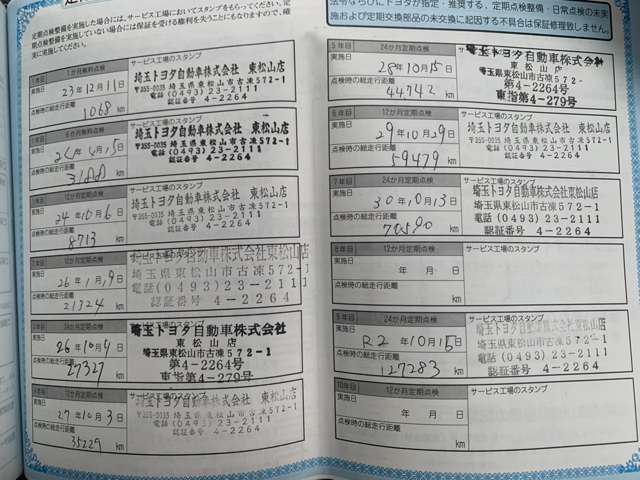 定期点検整備を実施した場合には、サービス工場においてスタンプをもらってください。定
期点検整備を実施していない場合には保証を受ける権利を失うことにもなりますので、確
実に実施してください。
1か月無料点検
サービス工場のスタンプ
実施日
23年12月11日
点検時の総走行距離
1068 km
埼玉トヨタ自動車株式会社 東松山店
〒355-0035 埼玉県東松山市古凍572-1
電話 (0493) 23-2111
認証番号 4-2264
6か月無料点検
サービス工場のスタンプ
実施日
点検時の総走行距離
km
埼玉トヨタ自動車株式会社 東松山店
〒355-0035 埼玉県東松山市古凍572-1
電話 (0493) 23-2111
認証番号 4-2264
1年目
12か月定期点検
サービス工場のスタンプ
実施日
24年10月6日
点検時の総走行距離
8713 km
埼玉トヨタ自動車株式会社 東松山店
〒355-0035 埼玉県東松山市古凍572-1
電話 (0493) 23-2111
認証番号 4-2264
実施日
26年1月9日
点検時の総走行距離
21324 km
埼玉トヨタ自動車株式会社東松山店
埼玉県東松山市古凍572-1
電話 (0493) 23-2111
認証番号 4-2264
24か月定期点検
サービス工場のスタンプ
実施日
26年10月4日
点検時の総走行距離
27327 km
埼玉トヨタ自動車株式会社
東松山店
埼玉県東松山市古凍572-1
第4-2264号
東指第4-279号
12か月定期点検
サービス工場のスタンプ
実施日
27年10月3日
点検時の総走行距離
35229 km
埼玉トヨタ自動車株式会社 東松山店
〒355-0035 埼玉県東松山市古凍572-1
電話 (0493) 23-2111
認証番号 4-2264
法令ならびにトヨタが指定・推奨する、定期点検整備・日常点検の未実
施および定期交換部品の未交換に起因する不具合は保証修理致しません。
5年目
24か月定期点検
サービス工場のスタンプ
実施日
28年10月15日
点検時の総走行距離
44742 km
埼玉トヨタ自動車株式会社
東松山店
埼玉県東松山市古凍572-1
第4-2264号
東指第4-279号
6年目
12か月定期点検
サービス工場のスタンプ
実施日
29年10月29日
点検時の総走行距離
59479 km
埼玉トヨタ自動車株式会社 東松山店
〒355-0035 埼玉県東松山市古凍572-1
電話 (0493) 23-2111
認証番号 4-2264
7年目
24か月定期点検
サービス工場のスタンプ
実施日
30年10月13日
点検時の総走行距離
km
埼玉トヨタ自動車株式会社東松山店
埼玉県東松山市古凍572-1
電話 (0493) 23-2111
認証番号 4-2264
8年目
12か月定期点検
サービス工場のスタンプ
実施日
年 月 日
点検時の総走行距離
km
9年目
24か月定期点検
サービス工場のスタンプ
実施日
R2年10月15日
点検時の総走行距離
127283 km
埼玉トヨタ自動車株式会社東松山店
埼玉県東松山市古凍572-1
電話 (0493) 23-2111
認証番号 4-2264
10年目
12か月定期点検
サービス工場のスタンプ
実施日
年 月 日
点検時の総走行距離
km